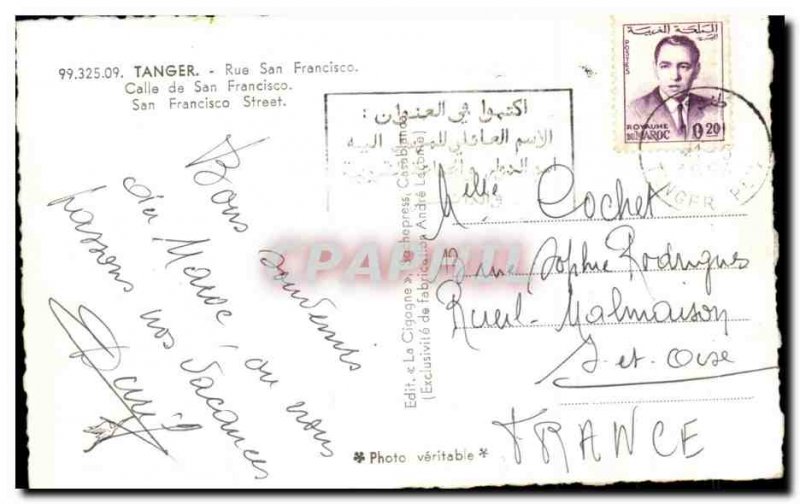 99.325.09. TANGER. - Rue San Francisco.
Calle de San Francisco.
San Francisco Street.
Bons souvenirs
du Maroc, ou nous
passons nos vacances
اكتبوا في العنوان :
الاسم العائلي للمرسل اليه
المملكة المغربية
POSTES
ROYAUME
DU MAROC
0,20
TANGER
Edit. « La Cigogne »
(Exclusivité de fabrication André Leconte)
Mlle Cochet
3 rue Sophie Rodrigues
Rueil-Malmaison
S-et-Oise
FRANCE
* Photo véritable *
CPAPHIL